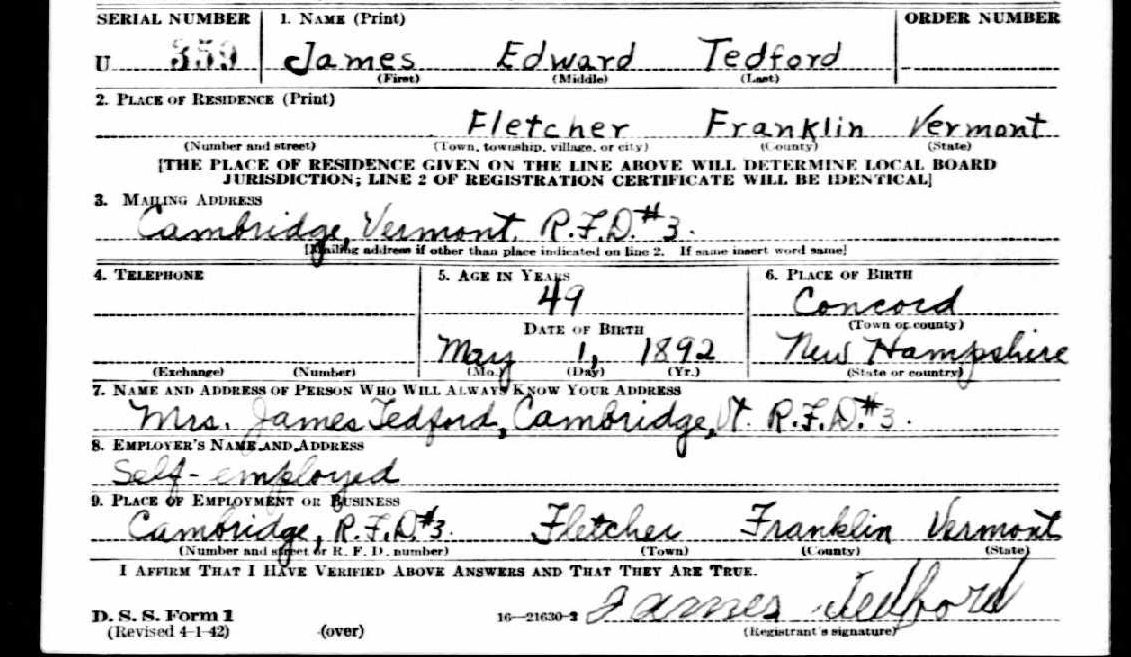 SERIAL NUMBER 1. NAME (Print) ORDER NUMBER
U 359 James Edward Tedford
(First) (Middle) (Last)
2. PLACE OF RESIDENCE (Print)
Fletcher Franklin Vermont
(Number and street) (Town, township, village, or city) (County) (State)
[THE PLACE OF RESIDENCE GIVEN ON THE LINE ABOVE WILL DETERMINE LOCAL BOARD
JURISDICTION; LINE 2 OF REGISTRATION CERTIFICATE WILL BE IDENTICAL]
3. MAILING ADDRESS
Cambridge, Vermont R.F.D. #3.
[Mailing address if other than place indicated on line 2. If same insert word same]
4. TELEPHONE 5. AGE IN YEARS 6. PLACE OF BIRTH
49 Concord
DATE OF BIRTH (Town or county)
May 1, 1892 New Hampshire
(Exchange) (Number) (Mo.) (Day) (Yr.) (State or country)
7. NAME AND ADDRESS OF PERSON WHO WILL ALWAYS KNOW YOUR ADDRESS
Mrs. James Tedford, Cambridge, Vt. R.F.D. #3.
8. EMPLOYER'S NAME AND ADDRESS
Self-employed
9. PLACE OF EMPLOYMENT OR BUSINESS
Cambridge, R.F.D. #3. Fletcher Franklin Vermont
(Number and street or R. F. D. number) (Town) (County) (State)
I AFFIRM THAT I HAVE VERIFIED ABOVE ANSWERS AND THAT THEY ARE TRUE.
D. S. S. Form 1 16—21630-2 James Tedford
(Revised 4-1-42) (over) (Registrant's signature)